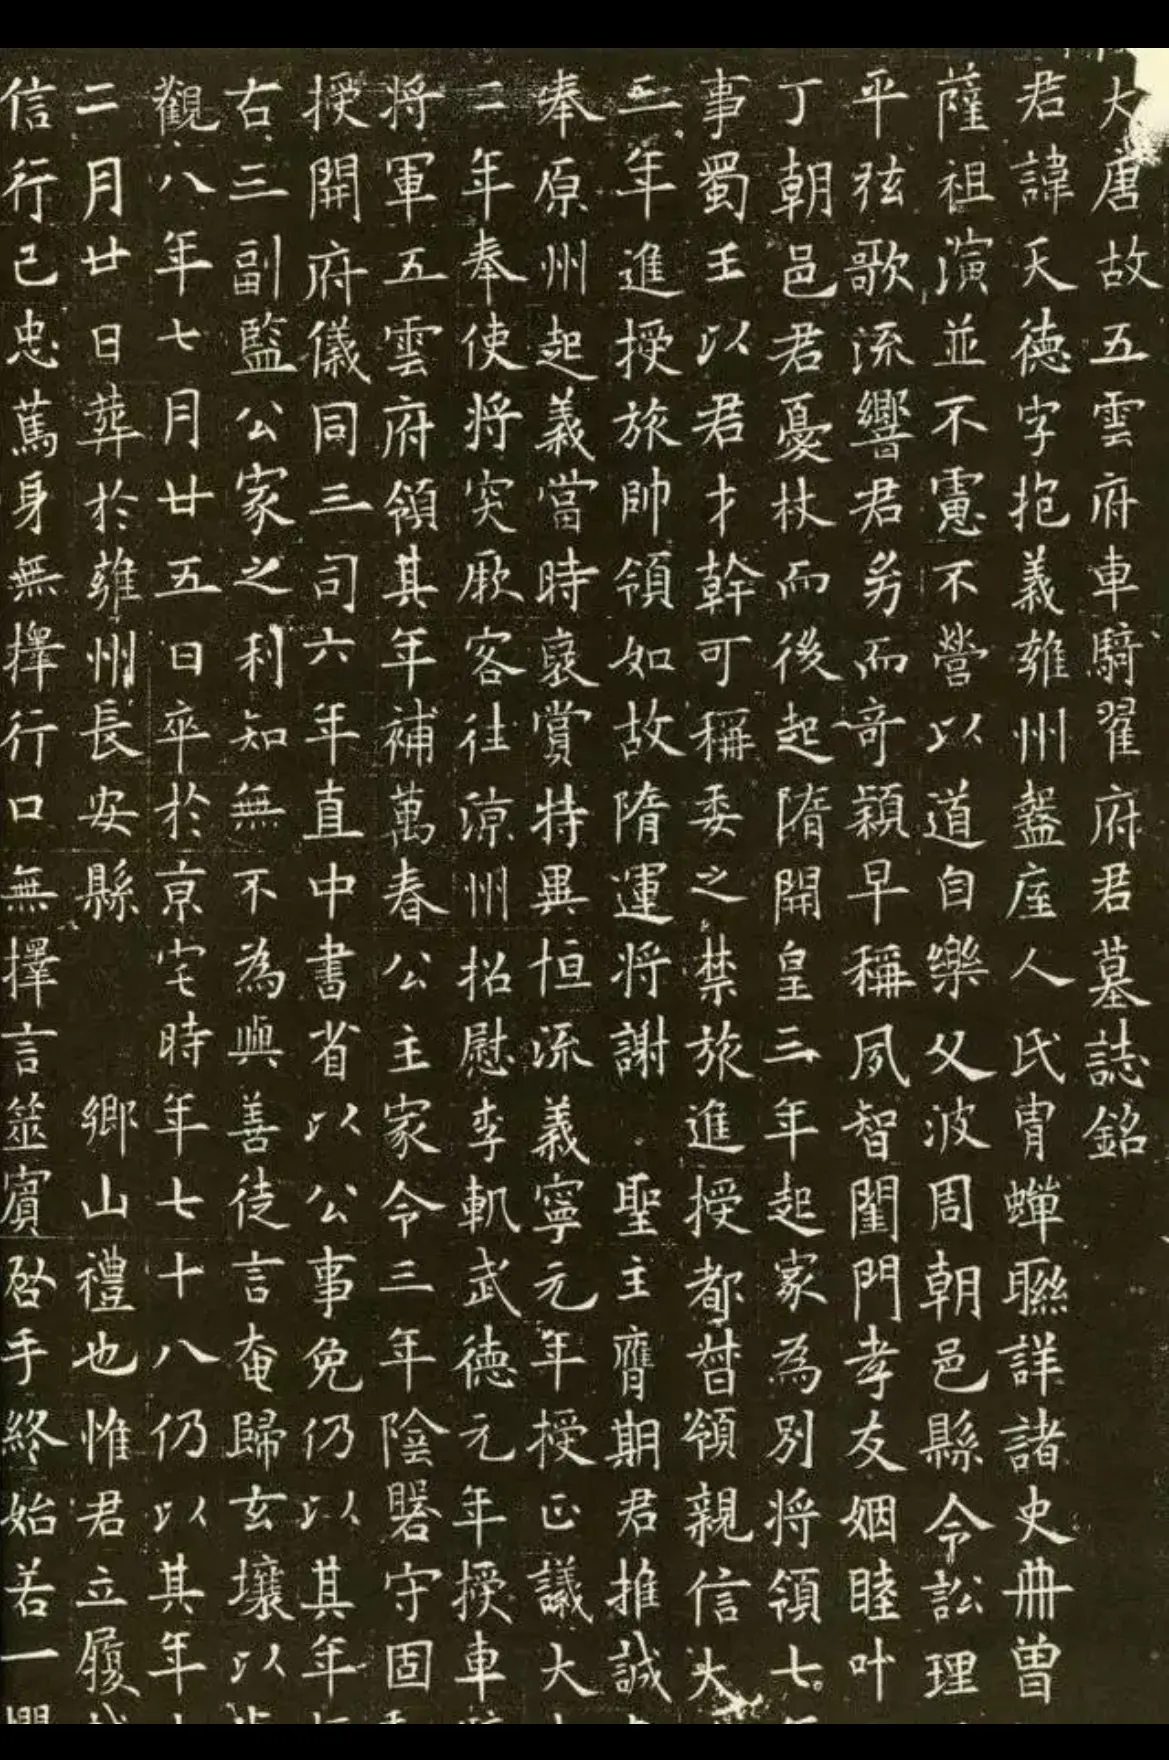 大唐故五雲府車騎翟府君墓誌銘
君諱天德字抱義雍州盩庢人氏胄蟬聯詳諸史冊曾
薩祖演並不憲不營以道自樂父波周朝邑縣令訟理
平弦歌流響君㓜而奇穎早稱夙智閨門孝友姻睦叶
丁朝邑君憂杖而後起隋開皇三年起家為別將領七
事蜀王以君才幹可稱委之禁旅進授都督領親信大
二年進授旅帥領如故隋運將謝聖主膺期君推誠
奉原州起義當時裒賞特異恒流義寧元年授正議大
二年奉使將突厥客往涼州招慰李軌武德元年授車
將軍五雲府領其年補萬春公主家令三年陰盤守固
授開府儀同三司六年直中書省以公事免仍以其年
右三副監公家之利知無不為與善徒言奄歸玄壤以
觀八年七月廿五日卒於京宅時年七十八仍以其年
二月廿日葬於雍州長安縣 鄉山禮也惟君立履
信行己忠蔿身無擇行口無擇言筮賓啓手終始若一